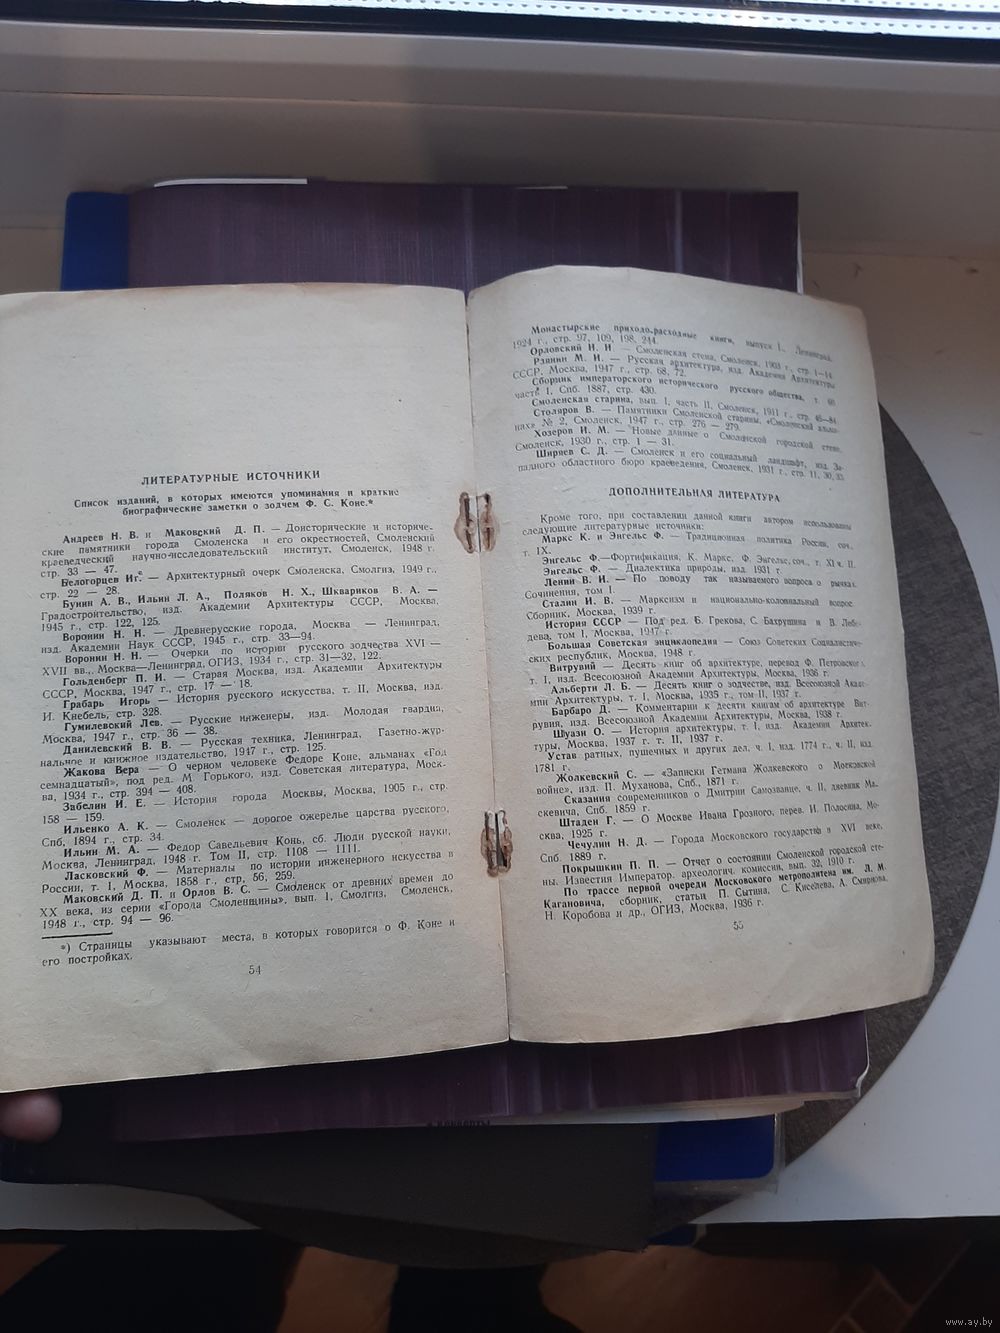 ЛИТЕРАТУРНЫЕ ИСТОЧНИКИ
Список изданий, в которых имеются упоминания и краткие
биографические заметки о зодчем Ф. С. Коне.*
Андреев Н. В. и Маковский Д. П. — Доисторические и историче-
ские памятники города Смоленска и его окрестностей, Смоленский
краеведческий научно-исследовательский институт, Смоленск, 1948 г.
стр. 33 — 47.
Белогорцев Иг. — Архитектурный очерк Смоленска, Смолгиз, 1949 г.,
стр. 22 — 28.
Бунин А. В., Ильин Л. А., Поляков Н. Х., Шквариков В. А. —
Градостроительство, изд. Академии Архитектуры СССР, Москва,
1945 г., стр. 122, 125.
Воронин Н. Н. — Древнерусские города, Москва — Ленинград,
изд. Академии Наук СССР, 1945 г., стр. 33—94.
Воронин Н. Н. — Очерки по истории русского зодчества XVI —
XVII вв., Москва—Ленинград, ОГИЗ, 1934 г., стр. 31—32, 122.
Гольденберг П. И. — Старая Москва, изд. Академии Архитектуры
СССР, Москва, 1947 г., стр. 17 — 18.
Грабарь Игорь — История русского искусства, т. II, Москва, изд.
И. Кнебель, стр. 328.
Гумилевский Лев. — Русские инженеры, изд. Молодая гвардия,
Москва, 1947 г., стр. 36 — 38.
Данилевский В. В. — Русская техника, Ленинград, Газетно-жур-
нальное и книжное издательство, 1947 г., стр. 125.
Жакова Вера — О черном человеке Федоре Коне, альманах «Год
семнадцатый», под ред. М. Горького, изд. Советская литература, Моск-
ва, 1934 г., стр. 394 — 408.
Забелин И. Е. — История города Москвы, Москва, 1905 г., стр.
158 — 159.
Ильенко А. К. — Смоленск — дорогое ожерелье царства русского,
Спб, 1894 г., стр. 34.
Ильин М. А. — Федор Савельевич Конь, сб. Люди русской науки,
Москва, Ленинград, 1948 г. Том II, стр. 1108 — 1111.
Ласковский Ф. — Материалы по истории инженерного искусства в
России, т. I, Москва, 1858 г., стр. 56, 259.
Маковский Д. П. и Орлов В. С. — Смоленск от древних времен до
XX века, из серии «Города Смоленщины», вып. I, Смолгиз, Смоленск,
1948 г., стр. 94 — 96.
*) Страницы указывают места, в которых говорится о Ф. Коне и
его постройках.
54
Монастырские приходо-расходные книги, выпуск I., Ленинград,
1924 г., стр. 97, 109, 198, 244.
Орловский И. И. — Смоленская стена, Смоленск, 1903 г., стр. 1—14.
Рзянин М. И. — Русская архитектура, изд. Академии Архитектуры
СССР, Москва, 1947 г., стр. 68, 72.
Сборник императорского исторического русского общества, т.
часть I, Спб. 1887, стр. 430.
Смоленская старина, вып. I, часть II, Смоленск, 1911 г., стр. 46—84.
Столяров В. — Памятники Смоленской старины, «Смоленский альма-
нах» № 2, Смоленск, 1947 г., стр. 276 — 279.
Хозеров И. М. — Новые данные о Смоленской городской стене,
Смоленск, 1930 г., стр. 1 — 31.
Ширяев С. Д. — Смоленск и его социальный ландшафт, изд. За-
падного областного бюро краеведения, Смоленск, 1931 г., стр. 11, 30,
ДОПОЛНИТЕЛЬНАЯ ЛИТЕРАТУРА
Кроме того, при составлении данной книги автором использованы
следующие литературные источники:
Маркс К. и Энгельс Ф. — Традиционная политика России, соч.,
т. IX.
Энгельс Ф.—Фортификация, К. Маркс, Ф. Энгельс, соч., т. XI ч. II.
Энгельс Ф. — Диалектика природы, изд. 1931 г.
Ленин В. И. — По поводу так называемого вопроса о рынках,
Сочинения, том I.
Сталин И. В. — Марксизм и национально-колониальный вопрос
Сборник, Москва, 1939 г.
История СССР — Под ред. Б. Грекова, С. Бахрушина и В. Лебе-
дева, том I, Москва, 1947 г.
Большая Советская энциклопедия — Союз Советских Социалистиче-
ских республик, Москва, 1948 г.
Витрувий — Десять книг об архитектуре, перевод Ф. Петровского,
т. I, изд. Всесоюзной Академии Архитектуры, Москва, 1936 г.
Альберти Л. Б. — Десять книг о зодчестве, изд. Всесоюзной Акаде-
мии Архитектуры, т. I, Москва, 1935 г., том II, 1937 г.
Барбаро Д. — Комментарии к десяти книгам об архитектуре Вит-
рувия, изд. Всесоюзной Академии Архитектуры, Москва, 1938 г.
Шуази О. — История архитектуры, т. I, изд. Академии Архитек-
туры, Москва, 1937 г. т. II, 1937 г.
Устав ратных, пушечных и других дел, ч. I, изд. 1774 г., ч. II, изд.
1781 г.
Жолкевский С. — «Записки Гетмана Жолкевского о Московской
войне», изд. П. Муханова, Спб., 1871 г.
Сказания современников о Дмитрии Самозванце, ч. II, дневник Ма-
скевича, Спб. 1859 г.
Штаден Г. — О Москве Ивана Грозного, перев. И. Полосина, Мо-
сква, 1925 г.
Чечулин Н. Д. — Города Московского государства в XVI веке,
Спб. 1889 г.
Покрышкин П. П. — Отчет о состоянии Смоленской городской сте-
ны. Известия Император. археологич. комиссии, вып. 32, 1910 г.
По трассе первой очереди Московского метрополитена им. Л. М.
Кагановича, сборник, статьи П. Сытина, С. Киселева, А. Смирнова,
Н. Коробова и др., ОГИЗ, Москва, 1936 г.
55
www.ay.by